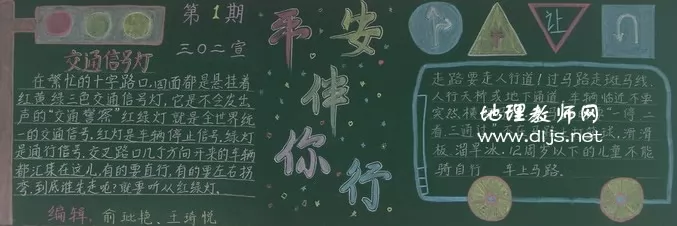 第1期
三〇二宣
交通信号灯
在繁忙的十字路口,四面都是悬挂着
红黄绿三色交通信号灯,它是不会发出
声的“交通警察”红绿灯就是全世界统
一的交通信号,红灯是车辆停止信号,绿灯
是通行信号,交叉路口几个方向开来的车辆
都汇集在这儿,有的要直行,有的要左右拐
弯,到底谁先走呢?就要听从红绿灯。
编辑:俞玭艳、王琦悦
平安
伴
你
行
让
走路要走人行道!过马路走斑马线、
人行天桥或地下通道,车辆临近不要
突然横 “一停二
看三通过” 球、滑滑
板、溜旱冰.12周岁以下的儿童不能
骑自行 车上马路.
地理教师网
www.dljs.net